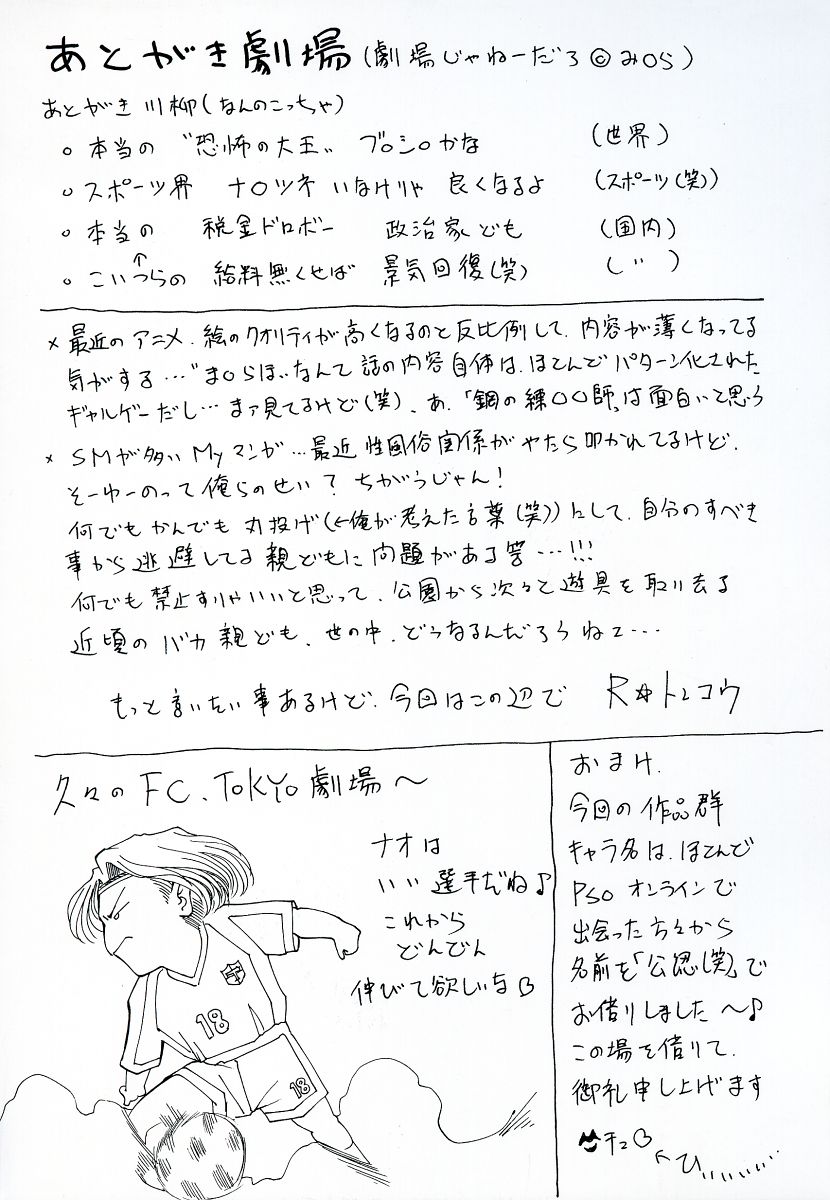 あとがき劇場(劇場じゃねーだろ©み○ら)
あとがき川柳(なんのこっちゃ)
○ 本当の "恐怖の大王" ブ○シ○かな (世界)
○ スポーツ界 ナ○ツネ いなけりゃ 良くなるよ (スポーツ(笑))
○ 本当の 税金ドロボー 政治家ども (国内)
↑
○ こいつらの 給料無くせば 景気回復(笑) (〃)
× 最近のアニメ、絵のクオリティが高くなるのと反比例して、内容が薄くなってる
気がする…"ま○らほ"なんて話の内容自体は、ほとんどパターン化された
ギャルゲーだし…まァ見てるけど(笑)、あ、「鋼の練○○師」は面白いと思う
× SMが多いMyマンガ…最近性風俗関係がやたら叩かれてるけど、
そーゆーのって俺らのせい?ちがうじゃん!
何でもかんでも丸投げ(←俺が考えた言葉(笑))にして、自分のすべき
事から逃避してる親どもに問題がある筈…!!!
何でも禁止すりゃいいと思って、公園から次々と遊具を取り去る
近頃のバカ親ども、世の中、どうなるんだろうねェ…
もっと言いたい事あるけど、今回はこの辺で R☆トレコウ
久々のFC、TOKYO劇場〜
ナオは
いい選手だね♪
これから
どんどん
伸びて欲しいな
18
18
おまけ、
今回の作品群
キャラ名は、ほとんど
PSOオンラインで
出会った方々から
名前を「公認(笑)」で
お借りしました〜♪
この場を借りて、
御礼申し上げます